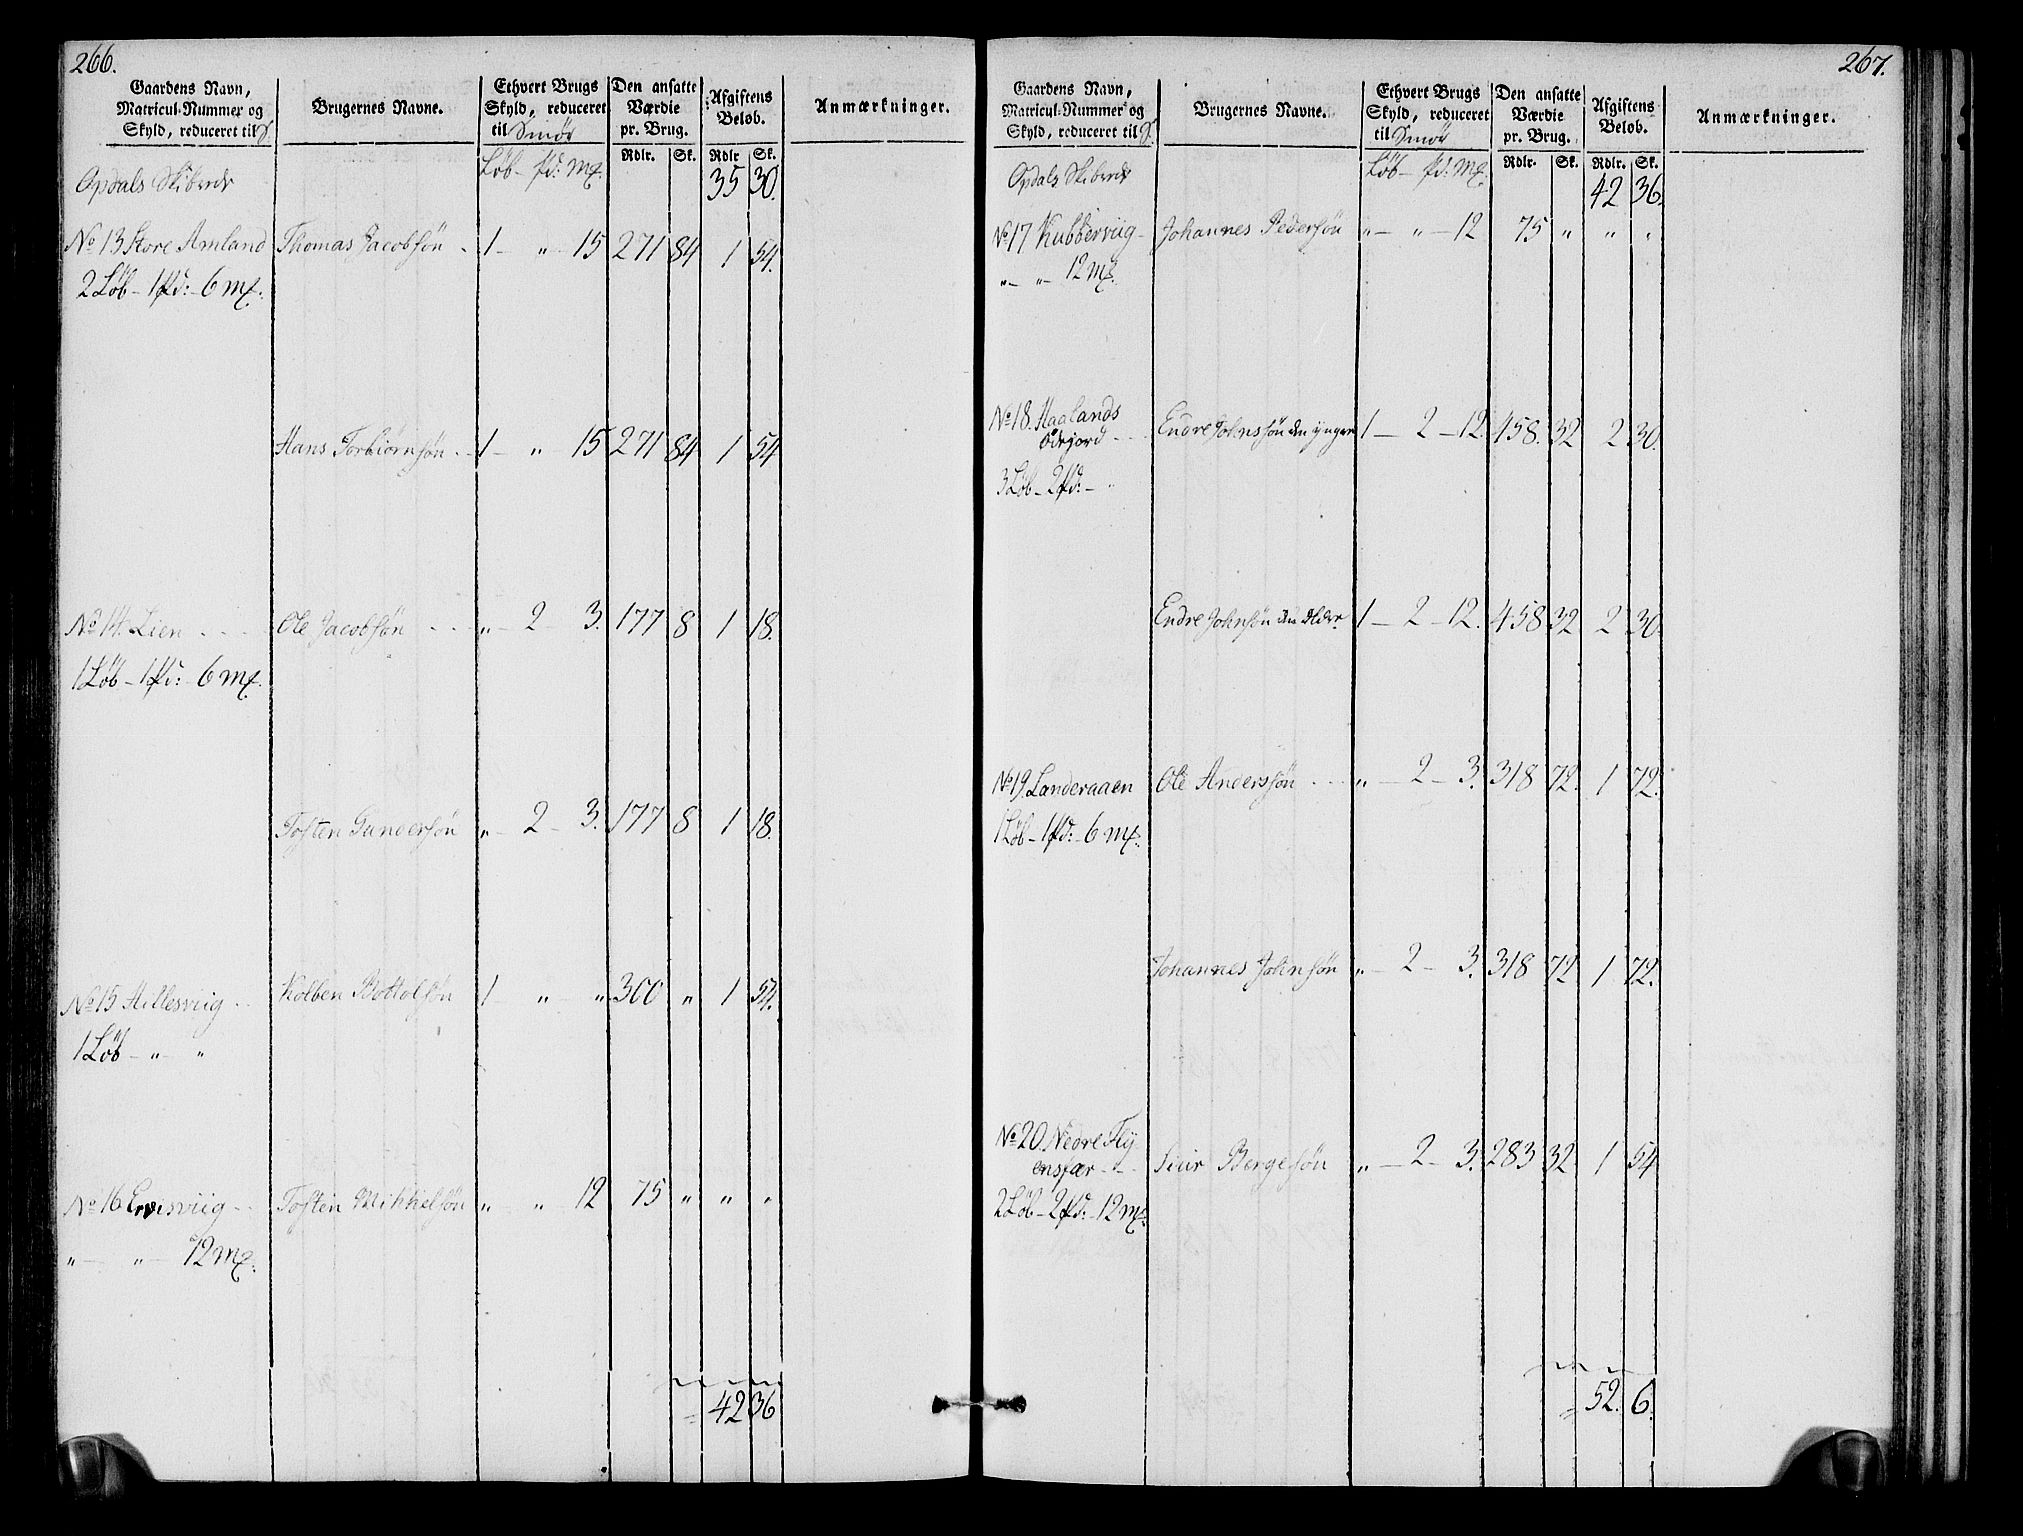 266.
Gaardens Navn, Matricul-Nummer og Skyld, reduceret til S. | Brugernes Navne. | Ethvert Brugs Skyld, reduceret til Smør | Den ansatte Værdie pr. Brug. | Afgiftens Beløb. | Anmærkninger.
Løb - pd: mk. | Rdlr. | Sk. | Rdlr | Sk.
Opdals Skibrede 35 30.
No 13 Store Amland Thomas Jacobsøn 1 - „ - 15 271 84 1 54.
2 Løb - 1 pd: - 6 mk.
Hans Torbiørnsøn 1 - „ - 15 271 84 1 54
No 14. Lien Ole Jacobsøn „ - 2 - 3. 177 8 1 18.
1 Løb - 1 pd: - 6 mk.
Tosten Gundersøn „ - 2 - 3. 177 8 1 18.
No 15 Hillesviig Kolben Bottolsøn 1 „ „ 300 „ 1 54.
1 Løb - „ - „
No 16 Ervisviig Tosten Mikkelsøn „ - „ - 12 75 „ „ „
„ - „ - 12 mk.
42 36
267.
Gaardens Navn, Matricul-Nummer og Skyld, reduceret til S. | Brugernes Navne. | Ethvert Brugs Skyld, reduceret til Smør | Den ansatte Værdie pr. Brug. | Afgiftens Beløb. | Anmærkninger.
Løb - pd: mk. | Rdlr. | Sk. | Rdlr. | Sk.
Opdals Skibrede 42 36.
No 17 Kubberviig Johannes Pedersøn „ - „ - 12 75 „ „ „
„ - „ - 12 mk.
No 18. Haalands
Ødejord Endre Johnssøn den ÿngere 1 - 2 - 12. 458. 32 2 30.
3 Løb - 2 pd: - „
Endre Johnsøn den Ældre 1 - 2 - 12. 458 32 2 30.
No 19. Landeraaen Ole Anderssøn „ - 2 - 3. 318 72. 1 72.
1 Løb - 1 pd: - 6 mk.
Johannes Johnsøn „ - 2 - 3. 318 72 1 72.
No 20. Nedre Flÿ
ensfær Siur Bergesøn „ - 2 - 3. 283 32 1 54
2 Løb - 2 pd: - 12 mk.
52. 6.